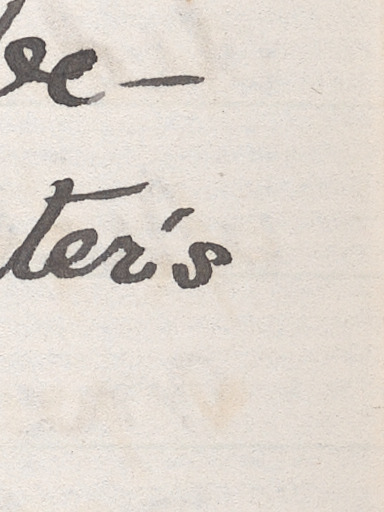 be—
ter's